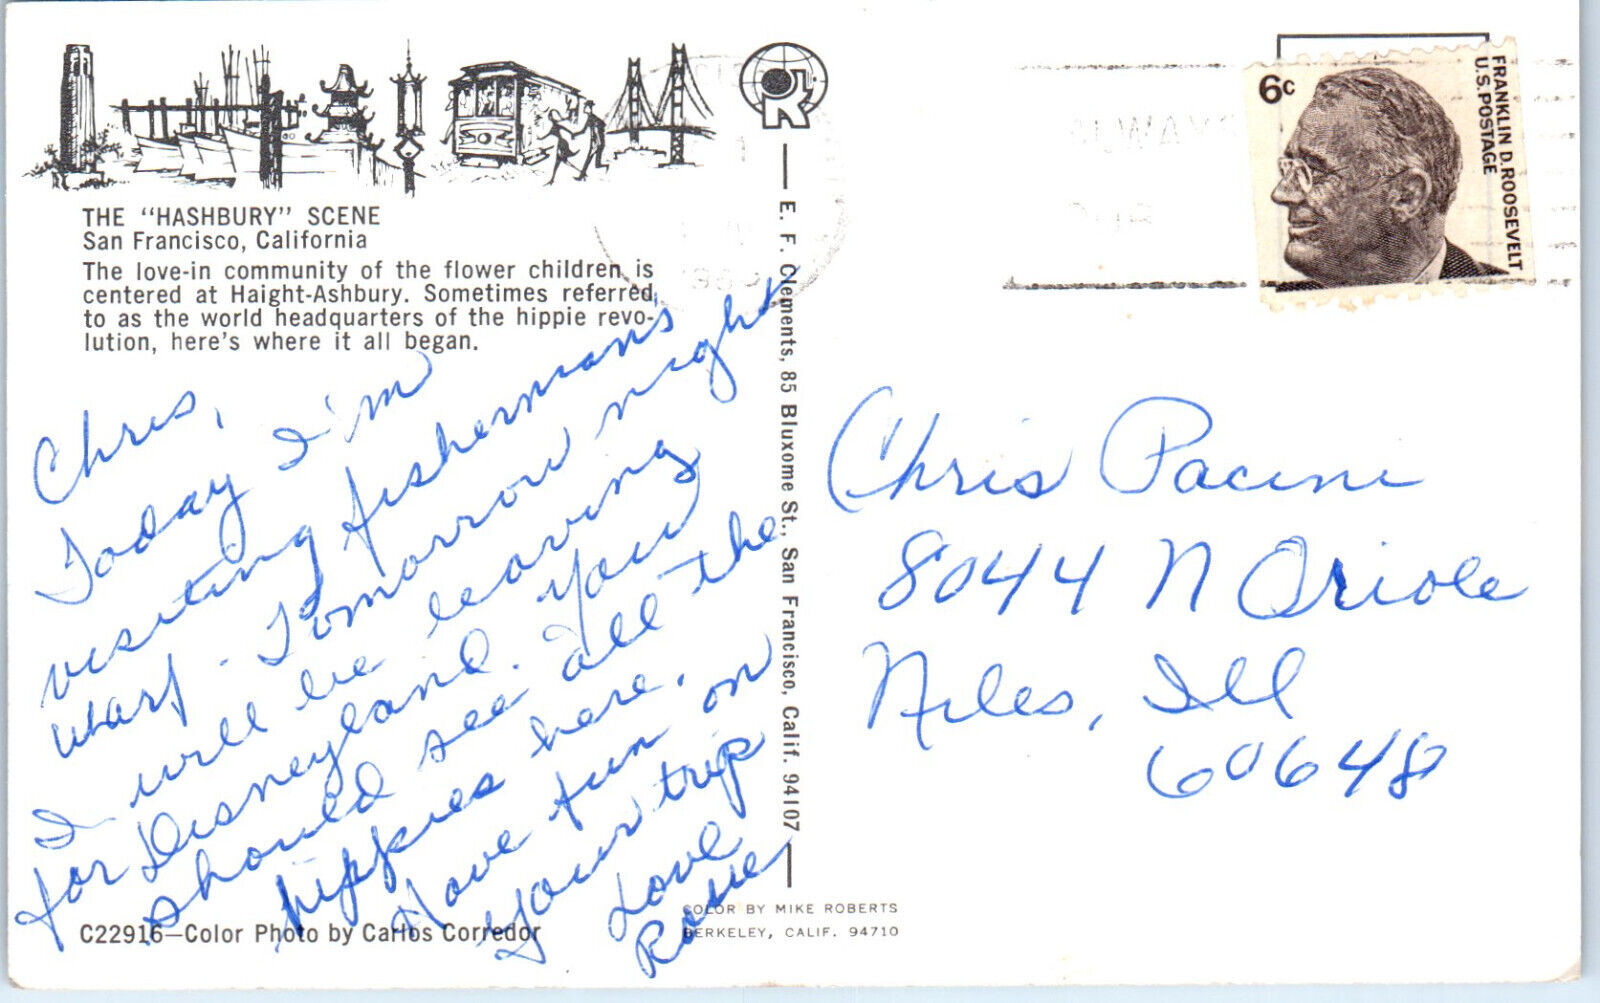 THE "HASHBURY" SCENE
San Francisco, California
The love-in community of the flower children is
centered at Haight-Ashbury. Sometimes referred
to as the world headquarters of the hippie revo-
lution, here's where it all began.
Chris,
Today I'm
visiting fisherman's
wharf. Tomorrow night
I will be leaving
for Disneyland. You
should see all the
hippies here.
Have fun on
your trip
Love
C22916—Color Photo by Carlos Corredor
COLOR BY MIKE ROBERTS
BERKELEY, CALIF. 94710
E. F. Clements, 85 Bluxome St., San Francisco, Calif. 94107
6c
FRANKLIN D. ROOSEVELT
U.S. POSTAGE
Chris Pacini
8044 N Oriole
Niles, Ill
60648